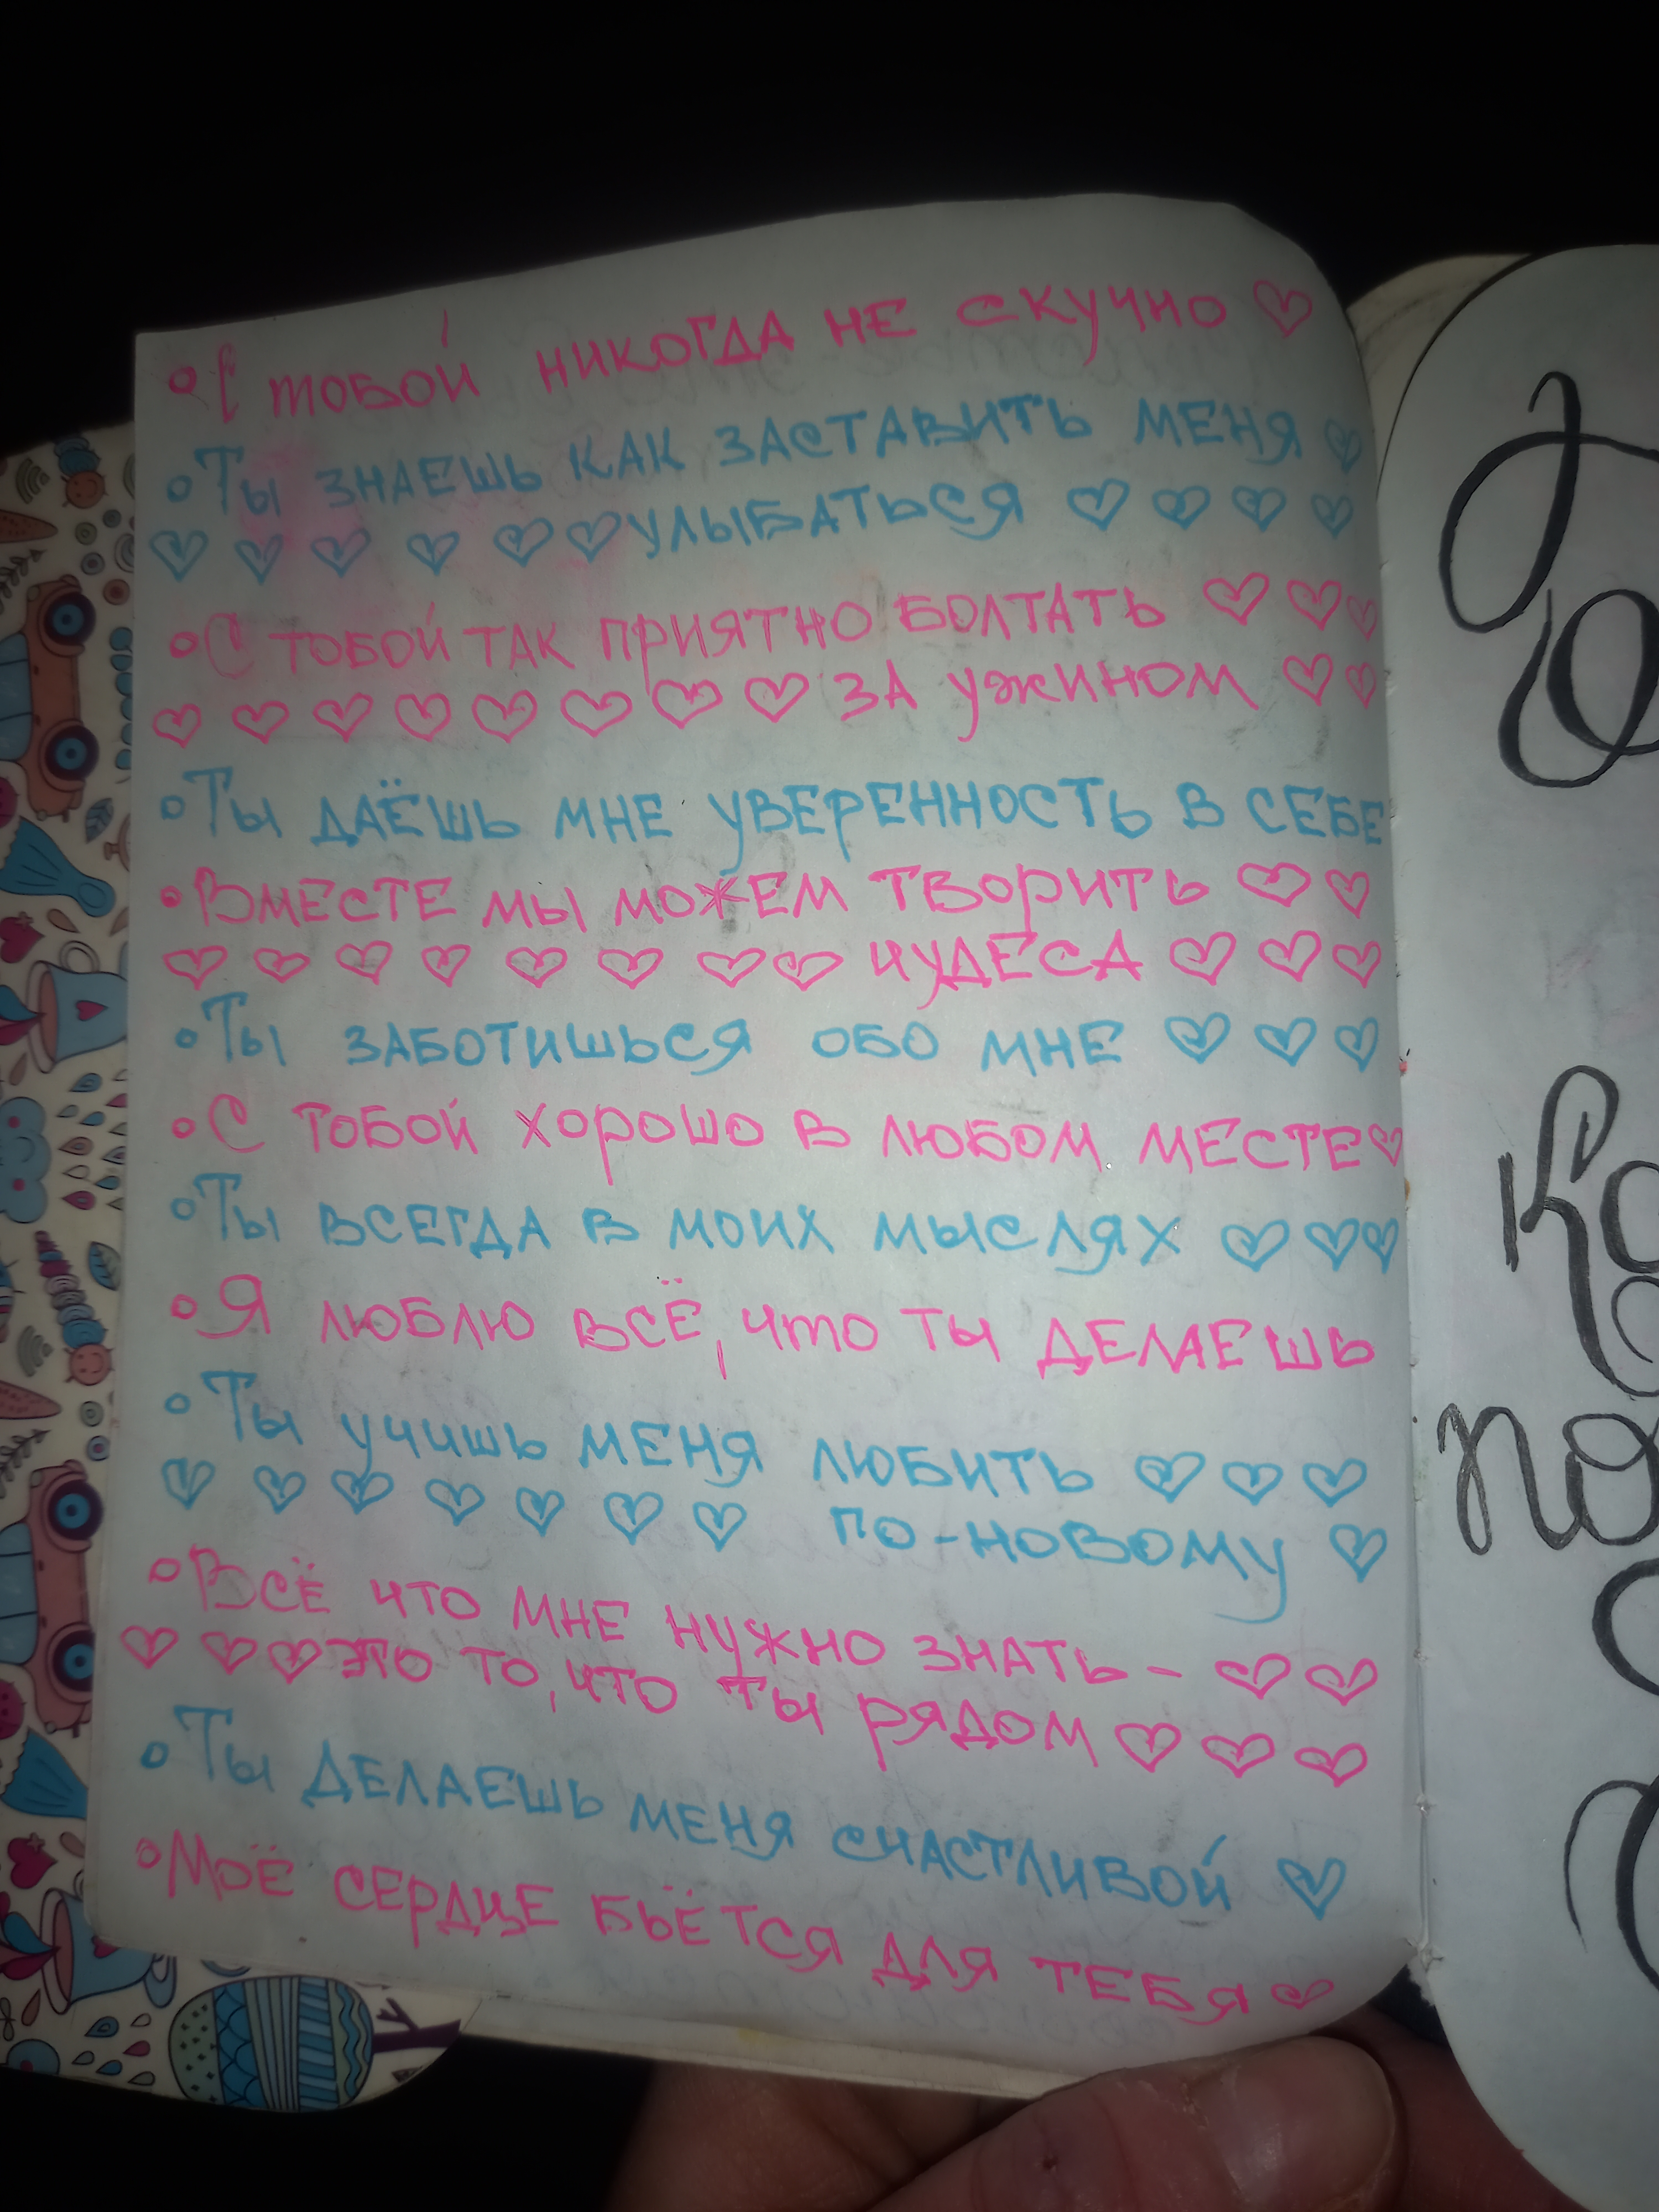 С тобой никогда не скучно
Ты знаешь как заставить меня
улыбаться
С тобой так приятно болтать
за ужином
Ты даёшь мне уверенность в себе
Вместе мы можем творить
чудеса
Ты заботишься обо мне
С тобой хорошо в любом месте
Ты всегда в моих мыслях
Я люблю всё, что ты делаешь
Ты учишь меня любить
по-новому
Всё что мне нужно знать -
это то, что ты рядом
Ты делаешь меня счастливой
Моё сердце бьётся для тебя